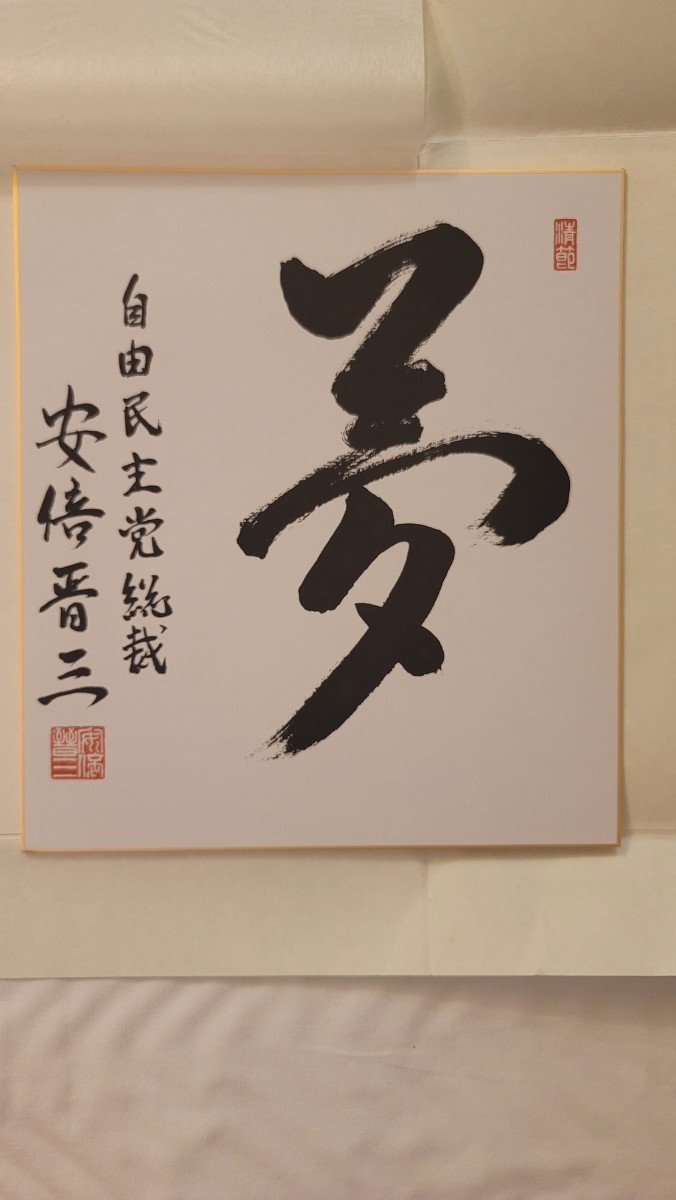 清節
夢
自由民主党総裁
安倍晋三
安倍
晋三